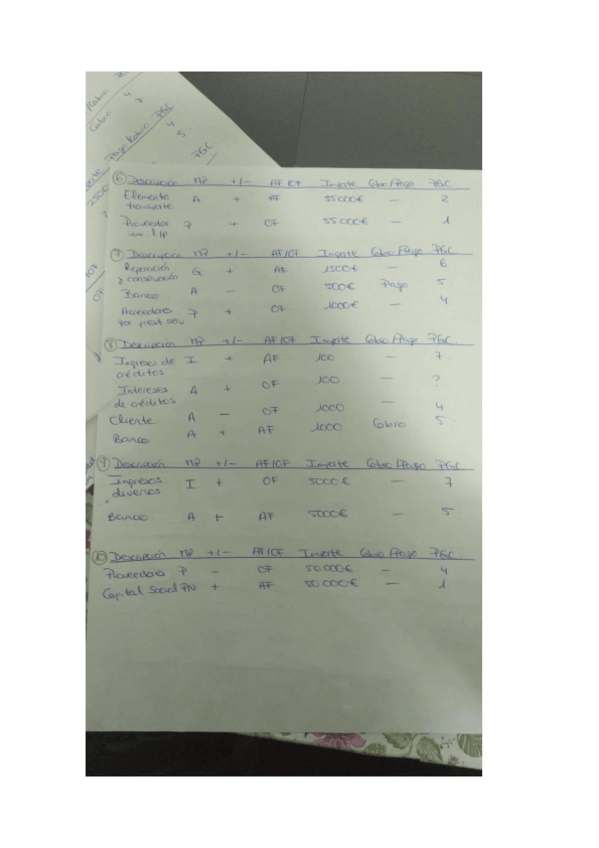 Pago
Cobro 4
7
Pago Kobro PGC
4
5
2500
PGC
OF
⑥ Descripción MP +/- AF/OF Importe Cobro/Pago PGC
Elemento transporte A + AF 55000€ — 2
Proveedor inm. l/p P + OF 55000€ — 1
⑦ Descripción MP +/- AF/OF Importe Cobro/Pago PGC
Reparación y conservación G + AF 1500€ — 6
Banco A - OF 500€ Pago 5
Acreedores por prest serv P + OF 1000€ — 4
⑧ Descripción MP +/- AF/OF Importe Cobro/Pago PGC
Ingresos de créditos I + AF 100 — 7
Intereses de créditos A + OF 100 — ?
Cliente A - OF 1000 — 4
Banco A + AF 1000 Cobro 5
⑨ Descripción MP +/- AF/OF Importe Cobro/Pago PGC
Ingresos diversos I + OF 5000€ — 7
Banco A + AF 5000€ — 5
⑩ Descripción MP +/- AF/OF Importe Cobro/Pago PGC
Proveedores P - OF 50000€ — 4
Capital Social PN + AF 50000€ — 1